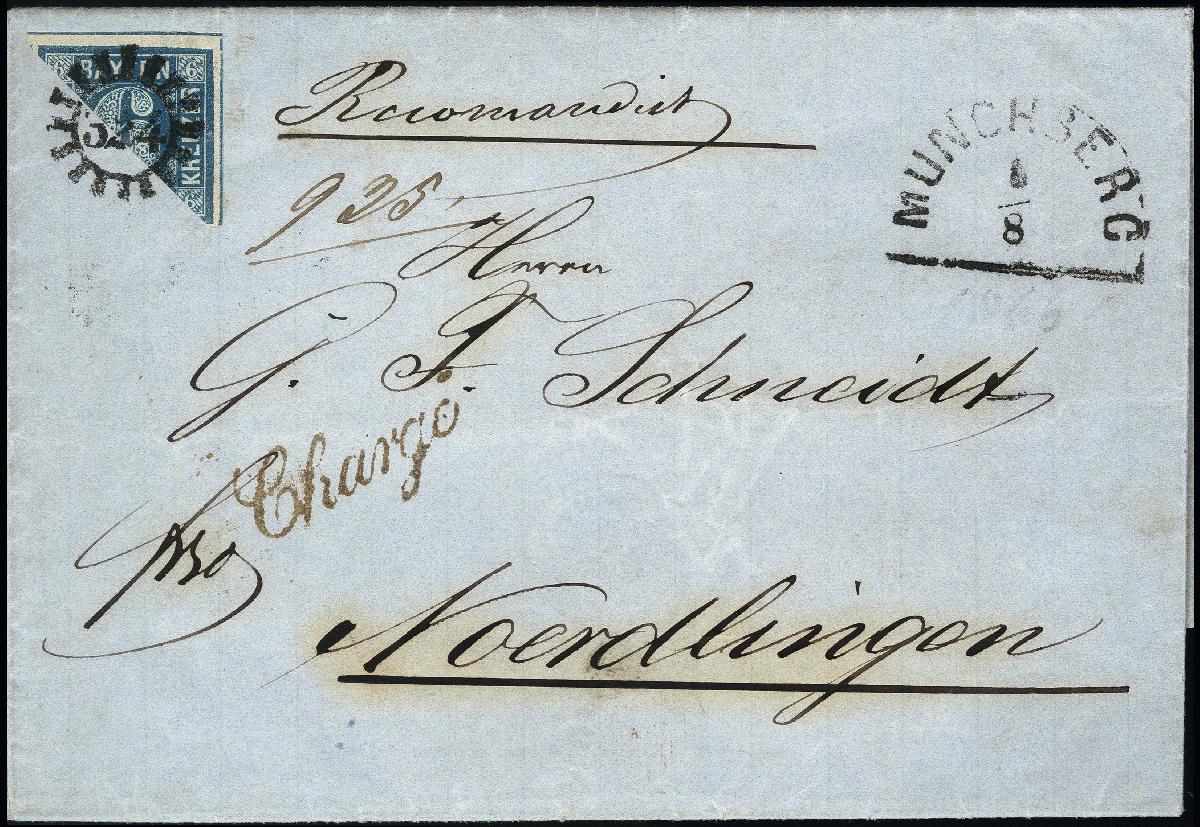 BAYERN
6
6
KREUZER
6
324
Recomandirt
MUNCHBERG
8
925.
Herrn
G. F. Schneidt
Chargé
fro
Noerdlingen